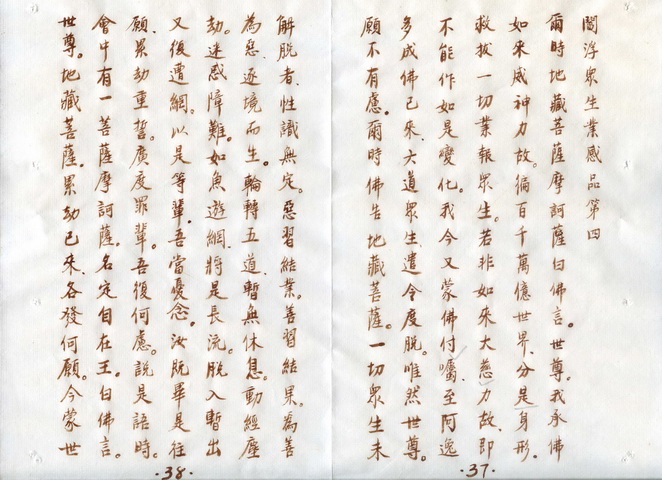 閻浮眾生業感品第四
爾時地藏菩薩摩訶薩白佛言。世尊。我承佛
如來威神力故。徧百千萬億世界、分是身形。
救拔一切業報眾生。若非如來大慈力故、即
不能作如是變化。我今又蒙佛付囑、至阿逸
多成佛已來、六道眾生、遣令度脫。唯然世尊。
願不有慮。爾時佛告地藏菩薩。一切眾生未
·37·
解脫者、性識無定。惡習結業。善習結果。為善
為惡、逐境而生。輪轉五道、暫無休息。動經塵
劫。迷惑障難。如魚遊網。將是長流。脫入暫出
又復遭網。以是等輩、吾當憂念。汝既畢是往
願、累劫重誓。廣度罪輩。吾復何慮。說是語時。
會中有一菩薩摩訶薩。名定自在王。白佛言。
世尊。地藏菩薩、累劫已來、各發何願。今蒙世
·38·